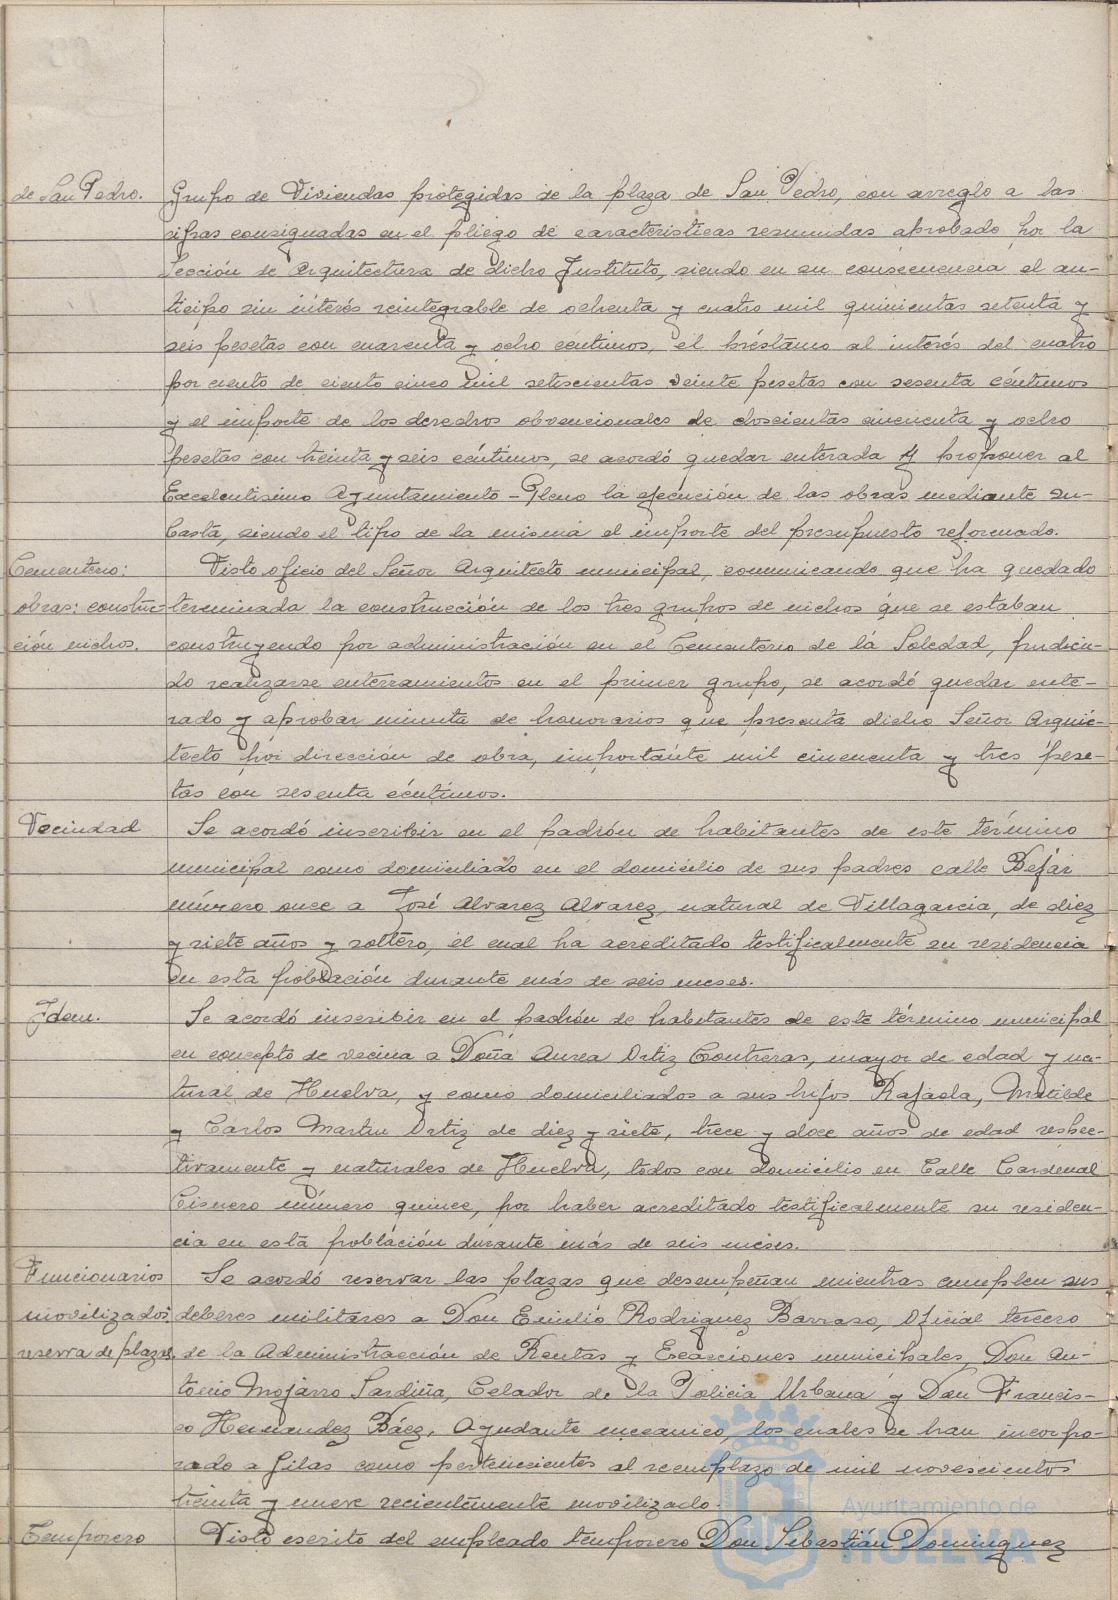 de San Pedro. Grupo de Viviendas protegidas de la plaza de San Pedro, con arreglo a las
cifras consignadas en el pliego de caracteristicas resumidas aprobado por la
Sección de Arquitectura de dicho Instituto, siendo en su consecuencia el an-
ticipo sin interés reintegrable de ochenta y cuatro mil quinientas setenta y
seis pesetas con cuarenta y ocho céntimos, el préstamo al interés del cuatro
por ciento de ciento cinco mil setecientas veinte pesetas con sesenta céntimos
y el importe de los derechos obvencionales de doscientas cincuenta y ocho
pesetas con treinta y seis céntimos, se acordó quedar enterada y proponer al
Excelentisimo Ayuntamiento-Pleno la ejecución de las obras mediante su-
basta, siendo el tipo de la misma el importe del presupuesto reformado.
Cementerio: Visto oficio del Señor Arquitecto municipal, comunicando que ha quedado
obras: construc- terminada la construcción de los tres grupos de nichos que se estaban
ción nichos. construyendo por administración en el Cementerio de la Soledad, pudien-
do realizarse enterramientos en el primer grupo, se acordó quedar ente-
rado y aprobar minuta de honorarios que presenta dicho Señor Arqui-
tecto por dirección de obra, importante mil cincuenta y tres pese-
tas con sesenta céntimos.
Vecindad Se acordó inscribir en el padrón de habitantes de este término
municipal como domiciliado en el domicilio de sus padres calle Bejar
número once a José Alvarez Alvarez, natural de Villagarcia, de diez
y siete años y soltero, el cual ha acreditado testificalmente su residencia
en esta población durante más de seis meses.
Idem. Se acordó inscribir en el padrón de habitantes de este término municipal
en concepto de vecina a Doña Aurea Ortiz Contreras, mayor de edad y na-
tural de Huelva, y como domiciliados a sus hijos Rafaela, Matilde
y Carlos Martin Ortiz de diez y siete, trece y doce años de edad respec-
tivamente y naturales de Huelva, todos con domicilio en Calle Cardenal
Cisnero número quince, por haber acreditado testificalmente su residen-
cia en esta población durante más de seis meses.
Funcionarios Se acordó reservar las plazas que desempeñan mientras cumplen sus
movilizados: deberes militares a Don Emilio Rodriguez Barraso, Oficial tercero
reserva de plazas. de la Administracción de Rentas y Exacciones municipales, Don An-
tonio Mojarro Sardiña, Celador de la Policia Urbana y Don Francis-
co Hernandez Báez, Ayudante mecanico, los cuales se han incorpo-
rado a filas como pertenecientes al reemplazo de mil novescientos
treinta y nueve recientemente movilizado.
Temporero Visto escrito del empleado temporero Don Sebastián Dominguez
Ayuntamiento de
HUELVA